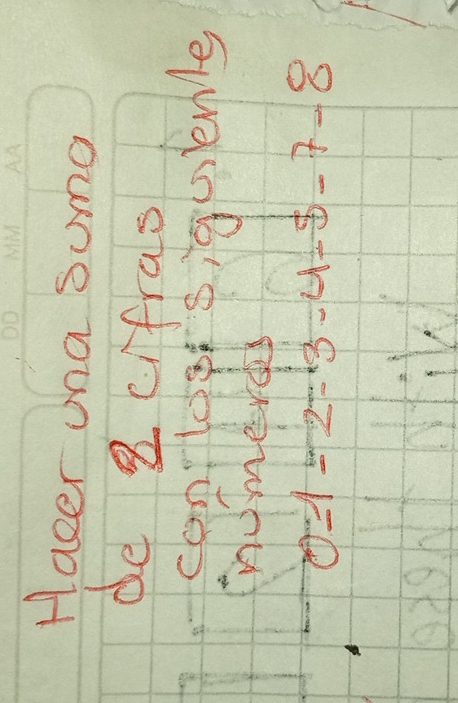 Hacer una suma
de 2 cifras
con los siguiente
números
0-1-2-3-4-5-7-8
DD MM AA